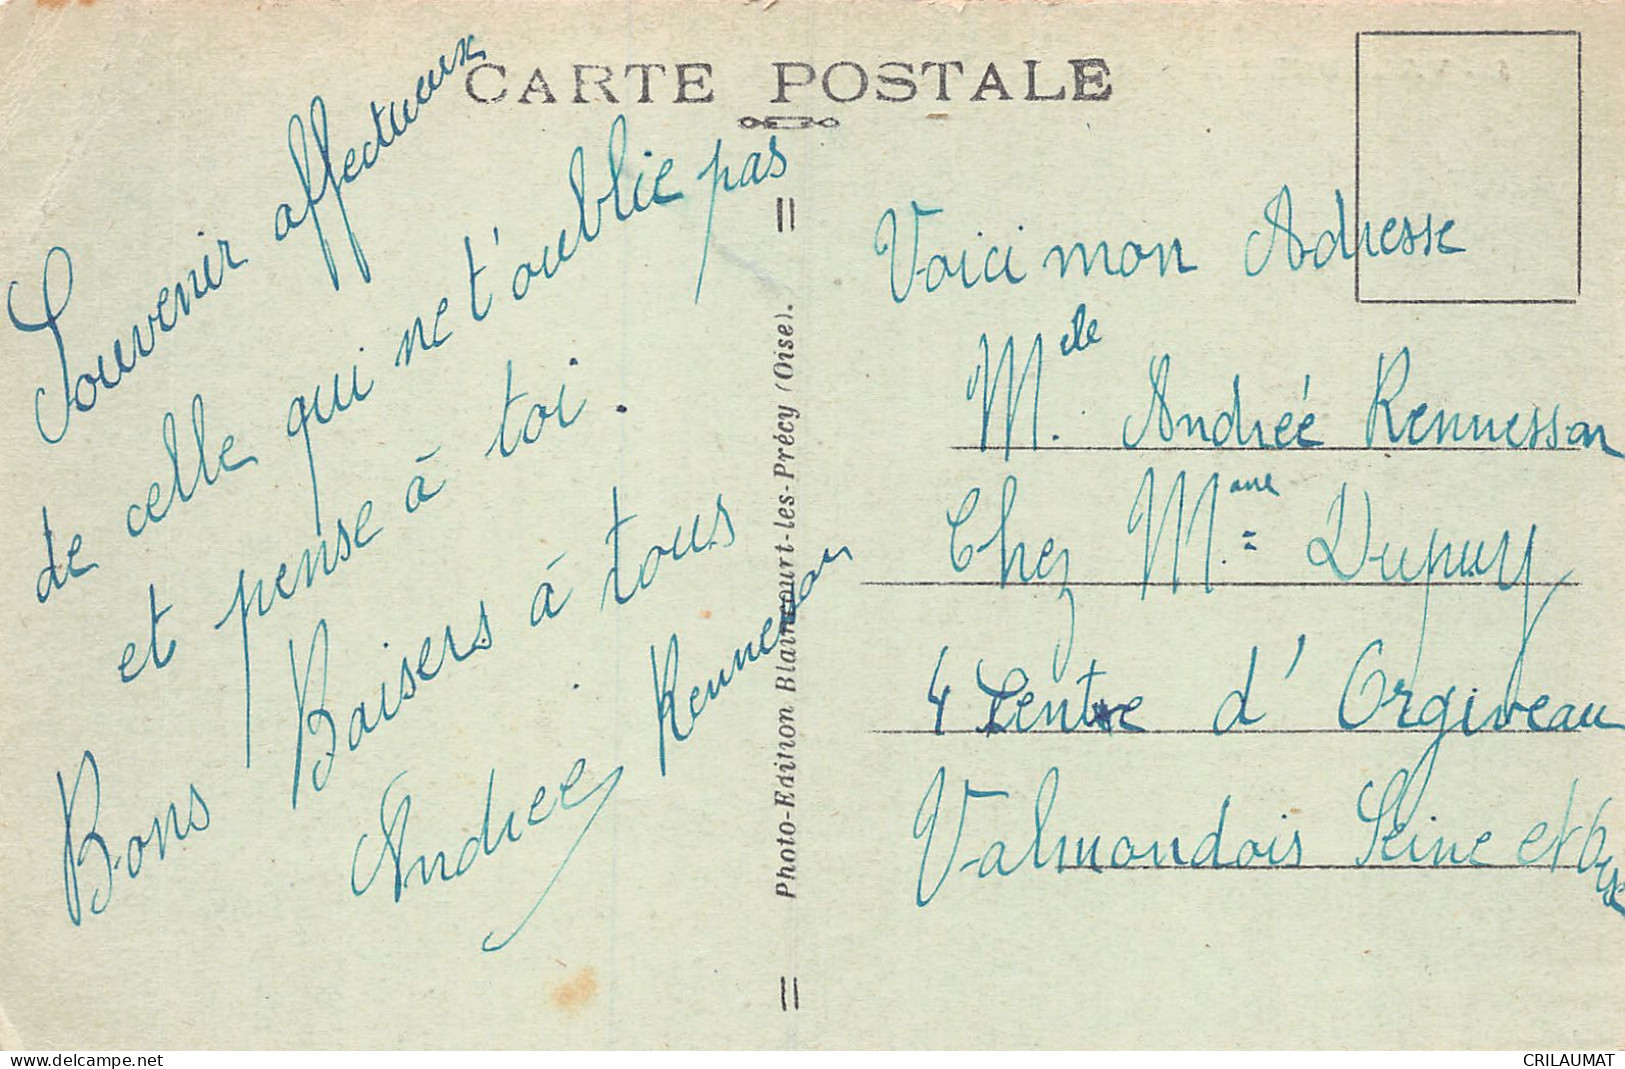 CARTE POSTALE
Souvenir affectueux
de celle qui ne t'oublie pas
et pense à toi.
Bons Baisers à tous
Andrée Rennesson
Photo-Edition Blaincourt-les-Précy (Oise).
Voici mon Adresse
Melle. Andrée Rennesson
Chez Mme Dupuy
4 Sente d'Orgiveau
Valmondois Seine et Oise
delcampe.net
CRILAUMAT